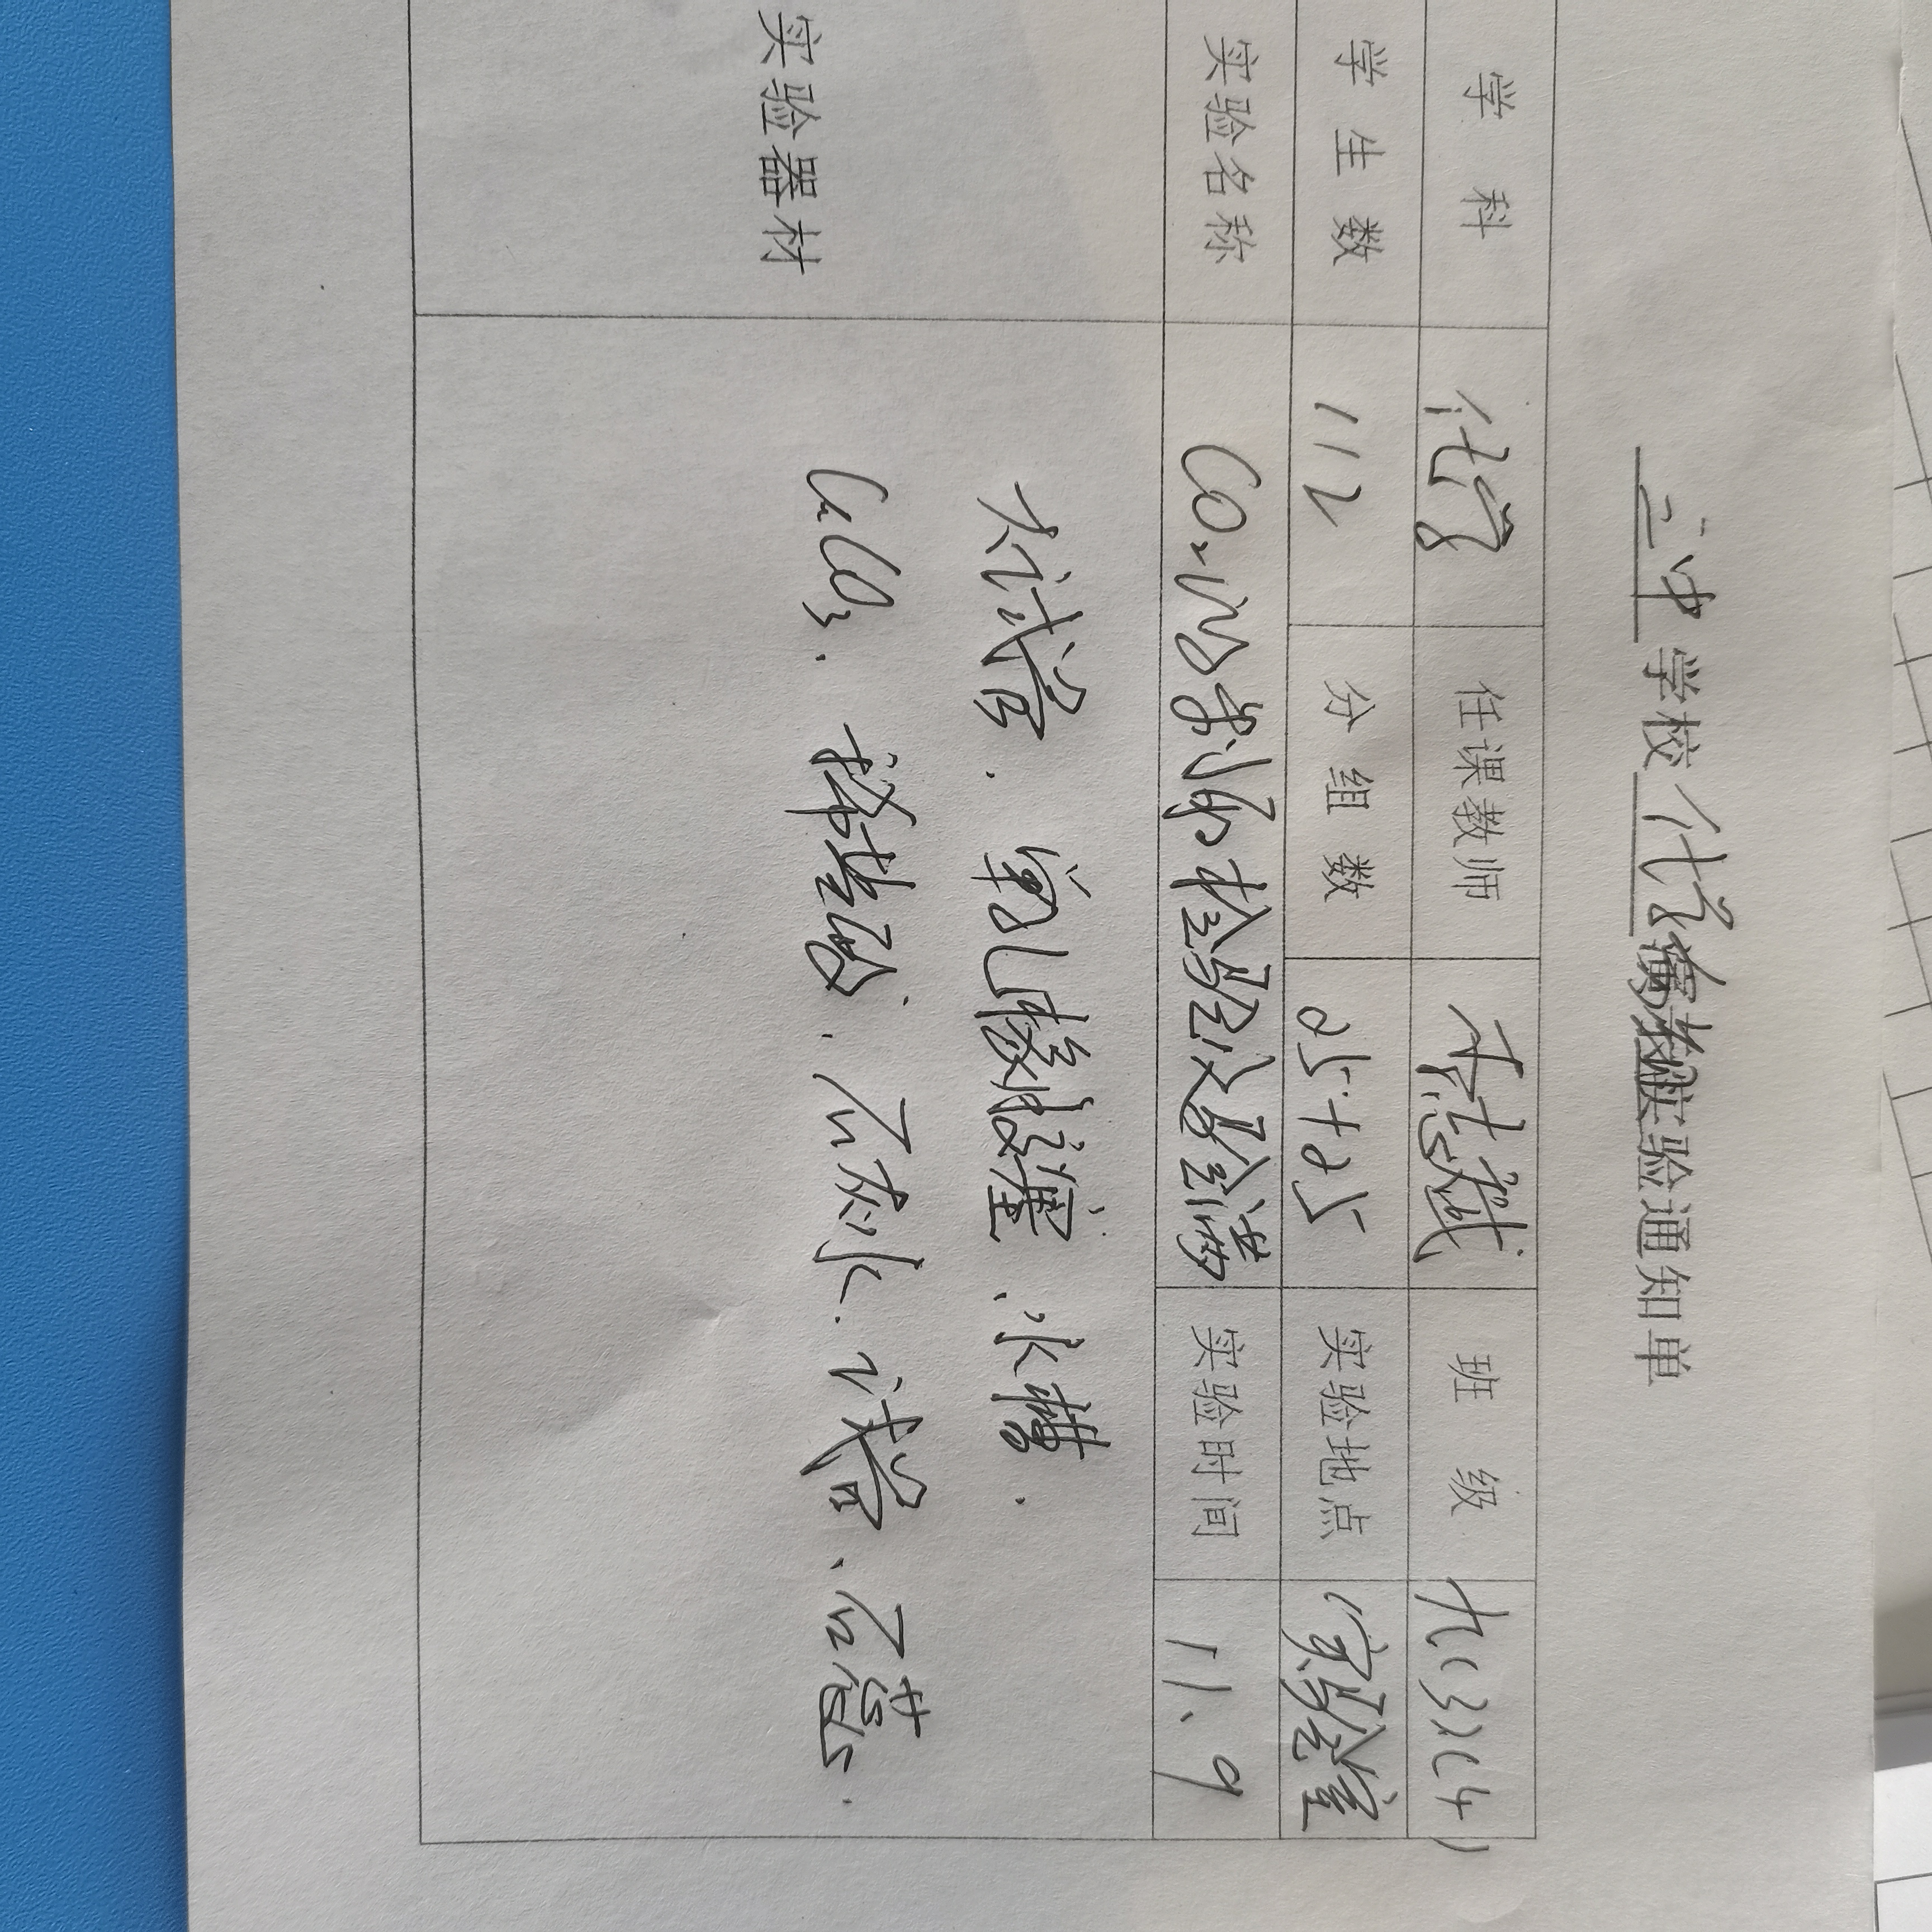 三中学校化学实验通知单
学科 化学 任课教师 班级 九(3)(4)
学生数 112 分组数 25+25 实验地点 实验室
实验名称 CO₂的制取检验及 实验时间 11、9
实验器材 大试管. 单孔橡胶塞、水槽.
CaCO₃. 稀盐酸、石灰水. 试管、石蕊.